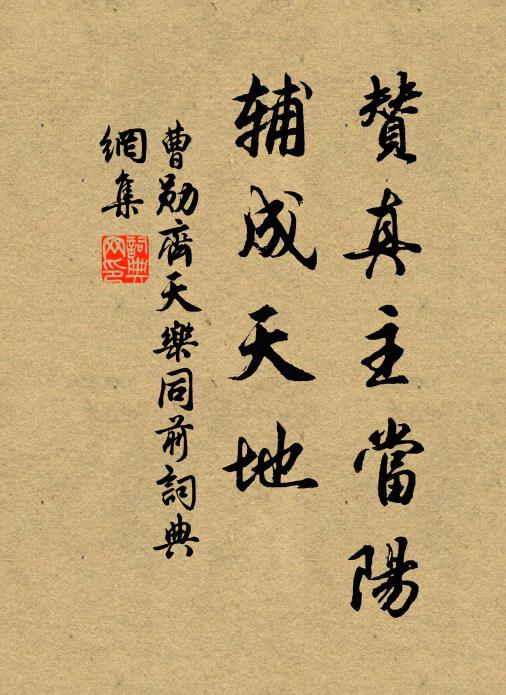 贊真主當陽
辅成天地
曹勛齊天樂同前詞典
網集
詞典
网印